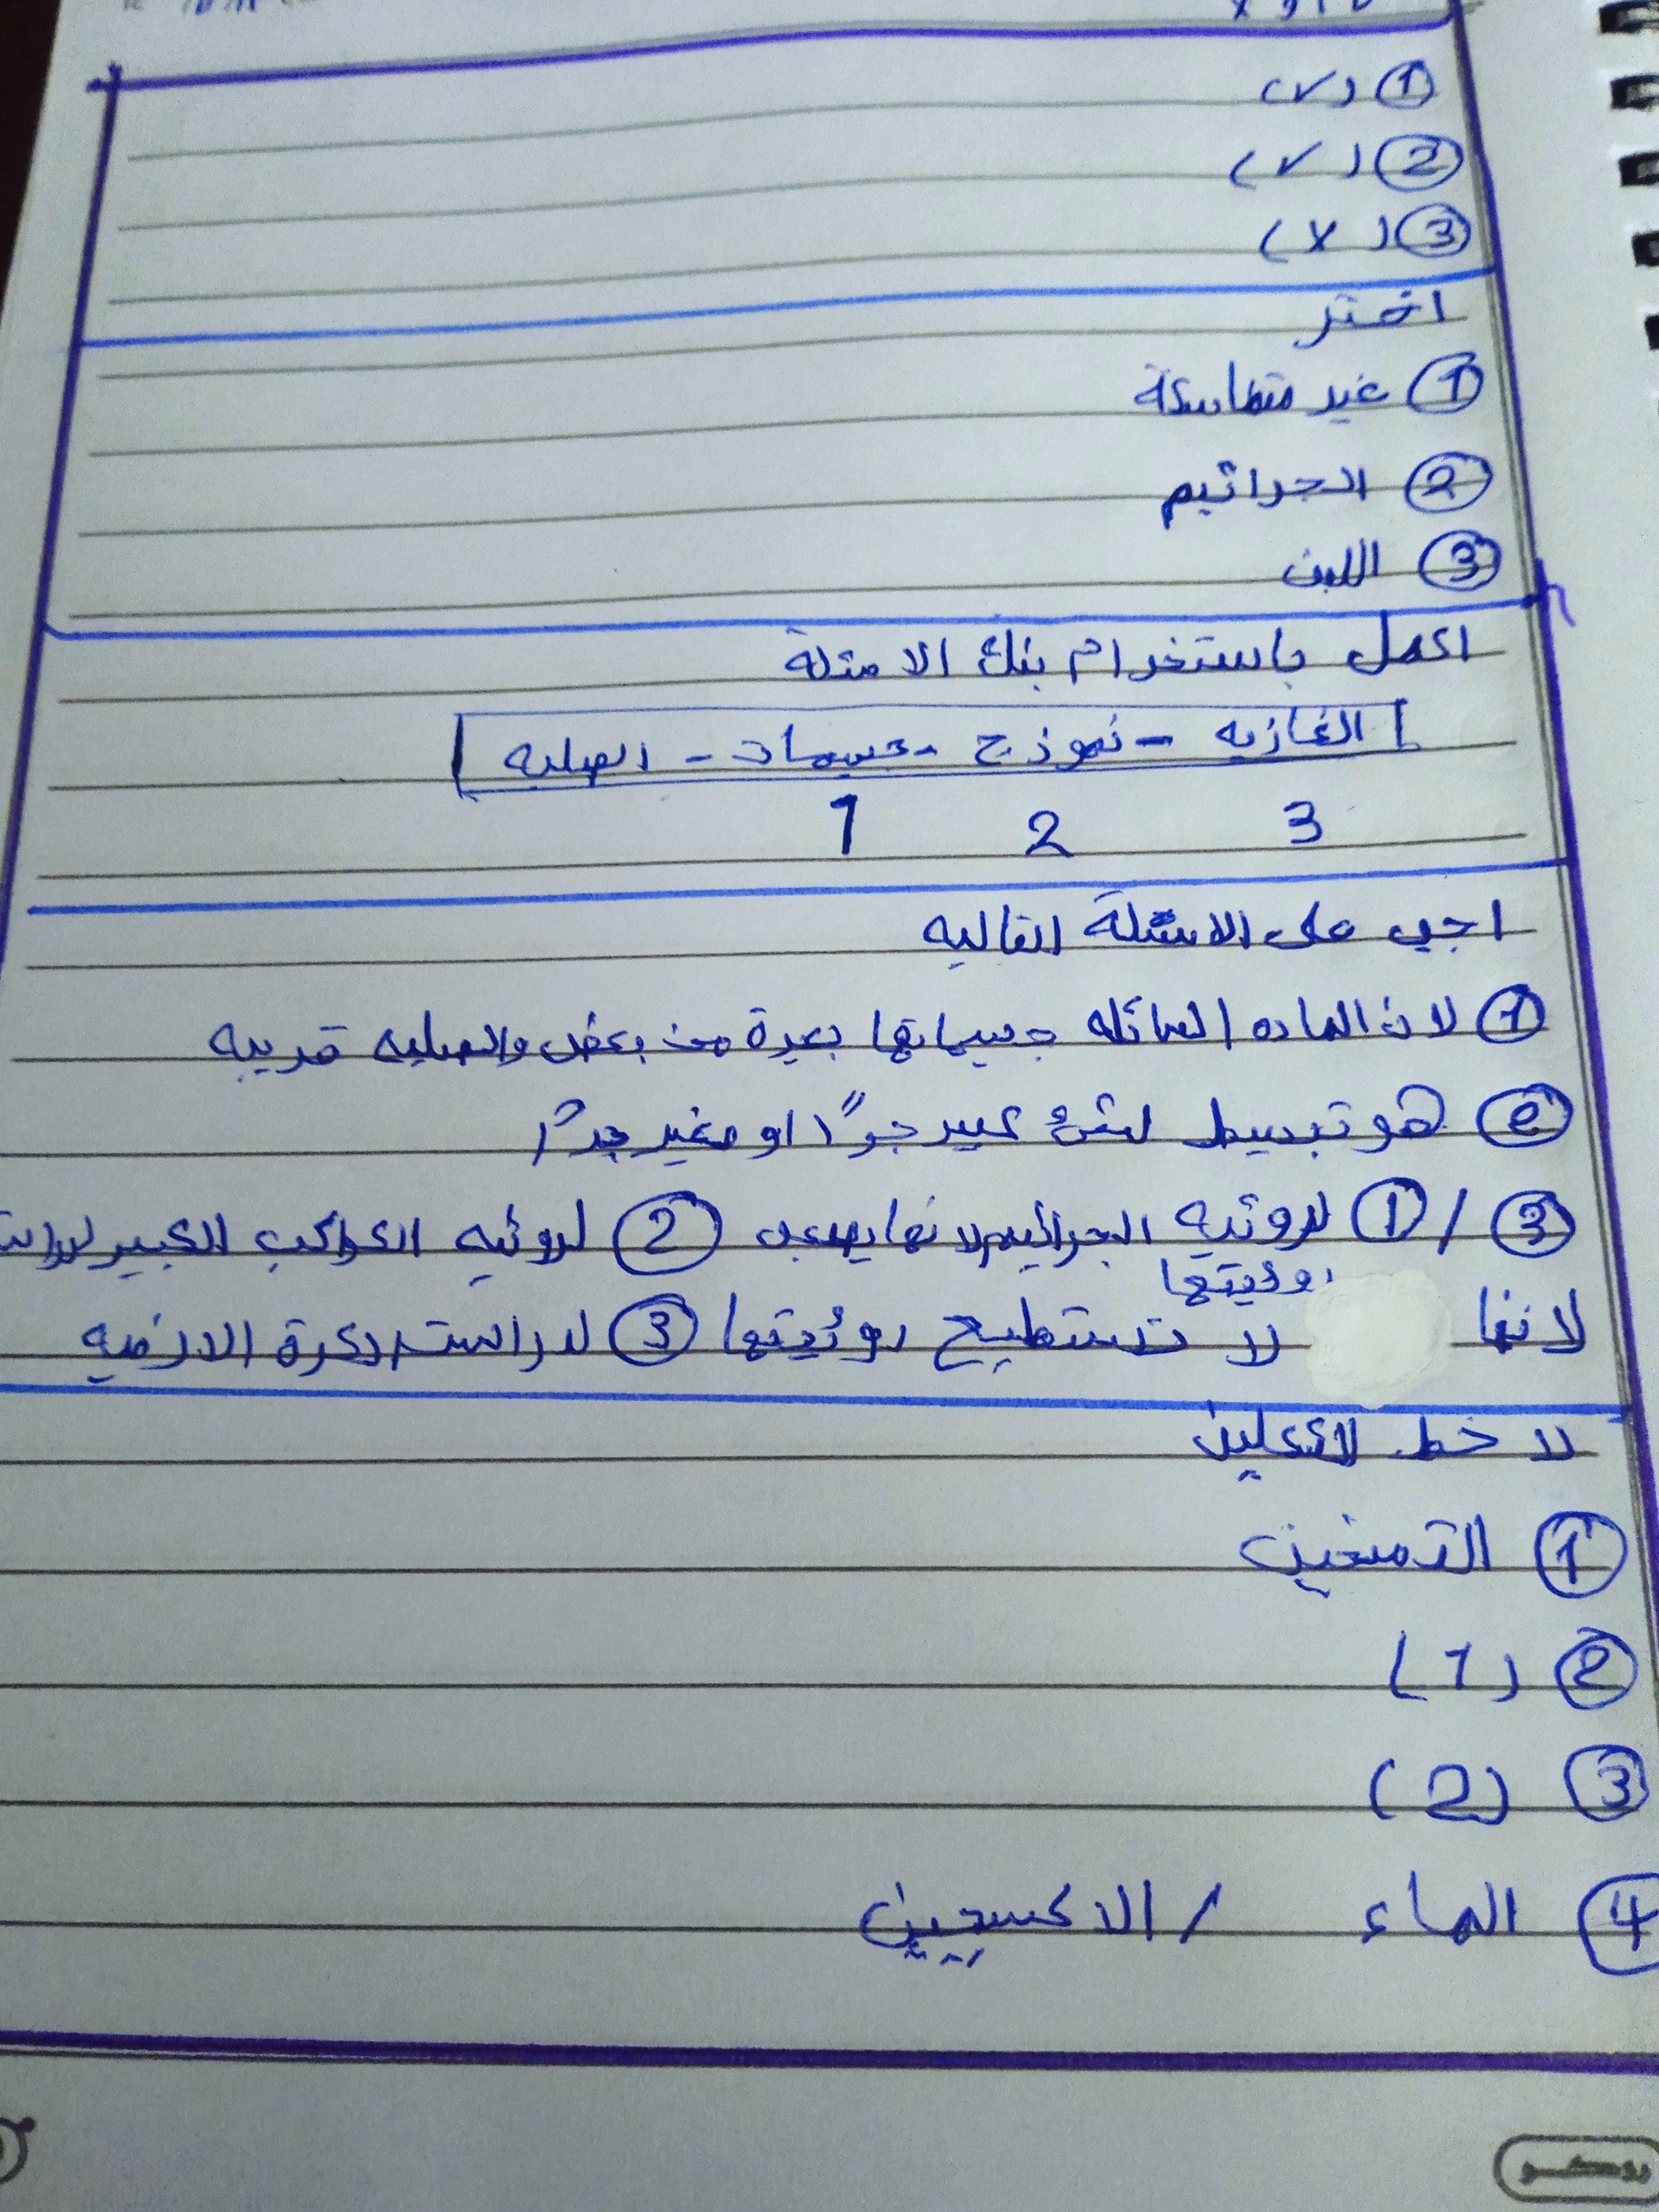 ① (✓)
② (✓)
③ (X)
اختر
① غير متماسكة
② الجراثيم
③ اللبن
اكمل باستخدام بنك الامثلة
الغازيه - نموذج - جسيمات - الصلبه
3 2 1
اجب على الاسئلة التاليه
① لان الماده السائله جسيماتها بعيدة من بعض والصلبه قريبه
② هو تبسيط لشئ كبير جدًا او صغير جدًا
③ / ① لروئيه الجراثيم لانها يصعب ② لروئيه الكواكب الكبير
روئيتها
لانها لا تستطيع روئيتها ③ لدراست الكرة الارضيه
لاحظ الشكلين
① التسخين
② (1)
③ (2)
④ الماء / الاكسيجين